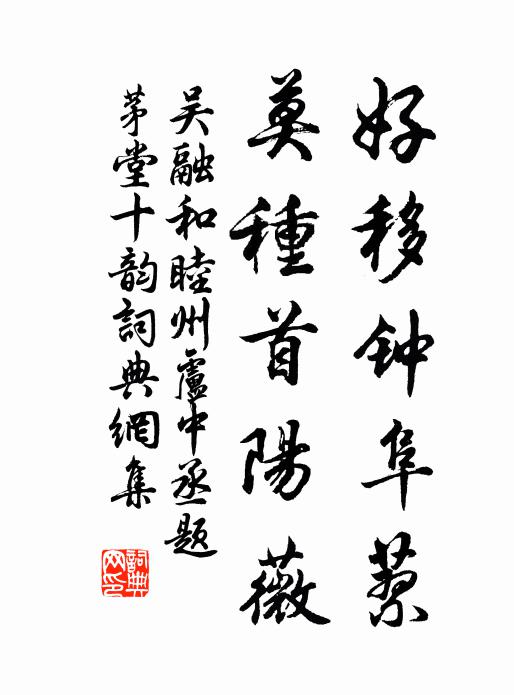 好移钟阜蓼
莫種首陽薇
吴融和睦州盧中丞题
茅堂十韵詞典網集
詞典網印